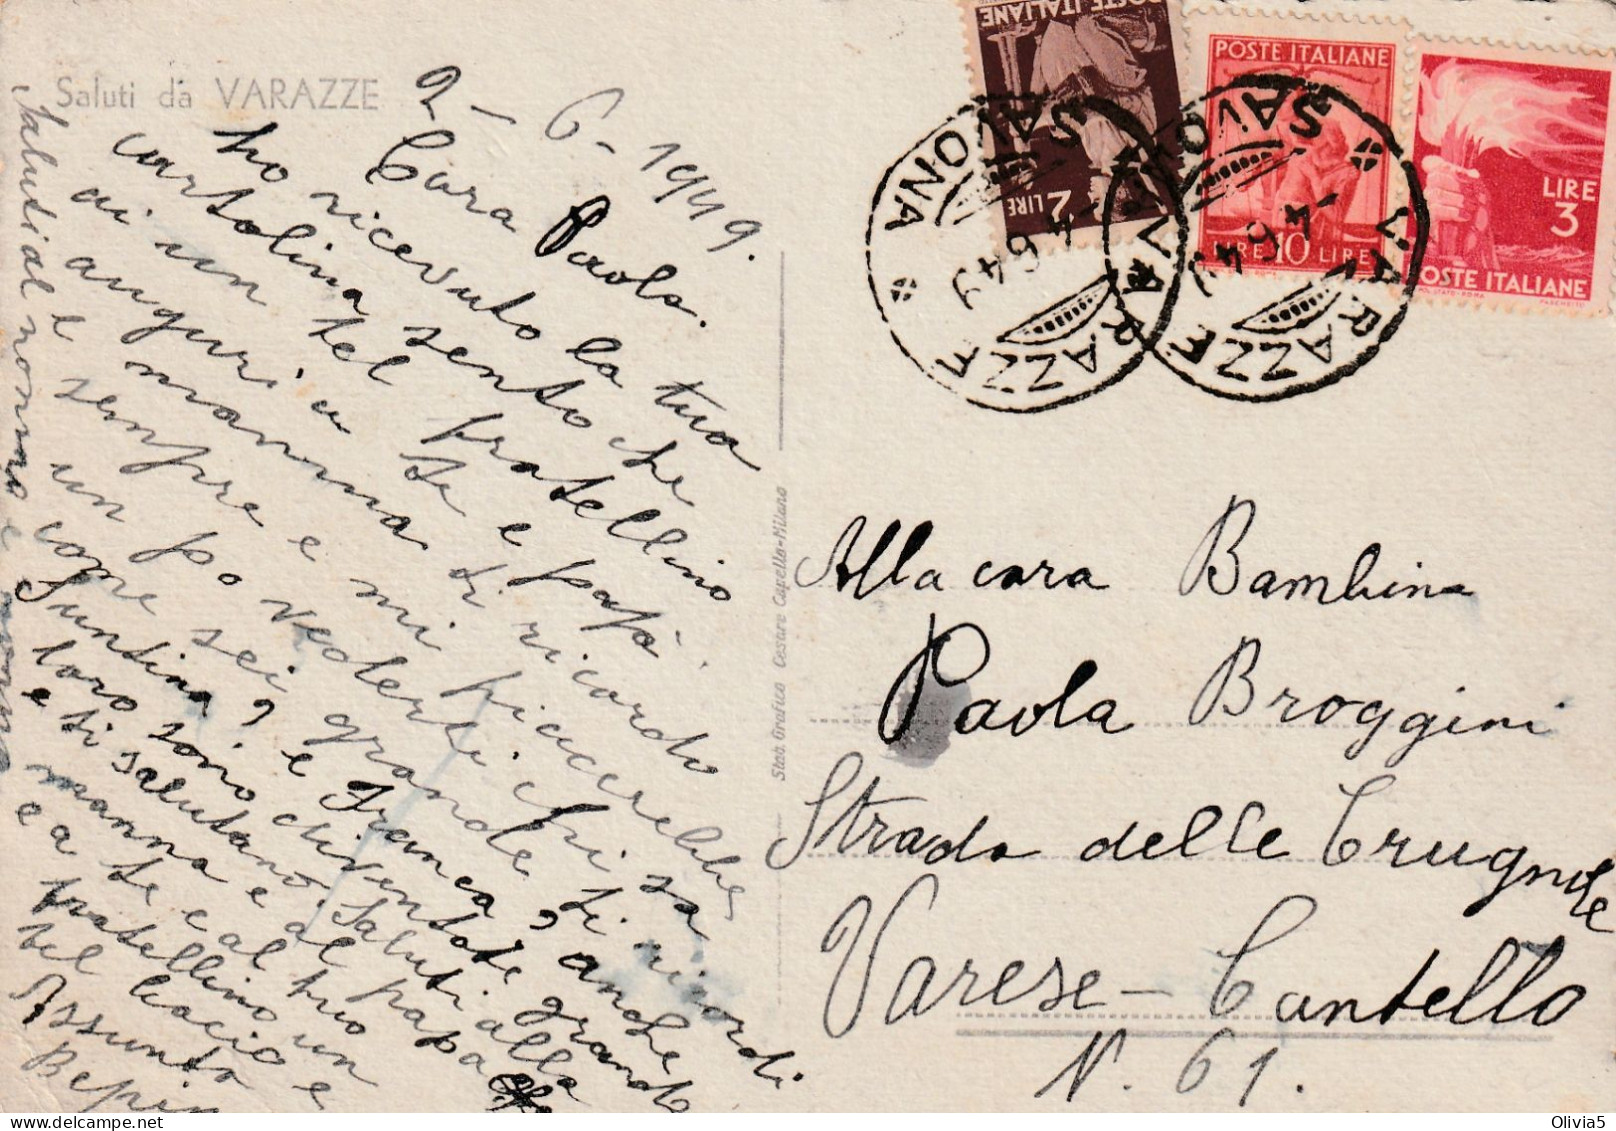 Saluti da VARAZZE
2-6-1949.
Cara Paola.
ho ricevuto la tua
cartolina sento che
ai un bel fratellino
auguri a te e papà
e mamma ti ricordo
sempre e mi piacerebbe
un po vederti chi sa
come sei grande ti ricordi
Suntina, e Franca, anche
loro sono diventate grande
e ti salutano. Saluti alla
mamma e al papa
e a te e al tuo
fratellino un
bel bacio e
Assunta
Bepin
Saluti al nonno e nonna
Stab. Grafico Cesare Capello-Milano
POSTE ITALIANE
2 LIRE
POSTE ITALIANE
LIRE 10 LIRE
LIRE
3
POSTE ITALIANE
VARAZZE
SAVONA
4 6 49
VARAZZE
SAVONA
4 6 49
Alla cara Bambina
Paola Broggini
Strada delle Crugnole
Varese - Cantello
N. 61.
Olivia5